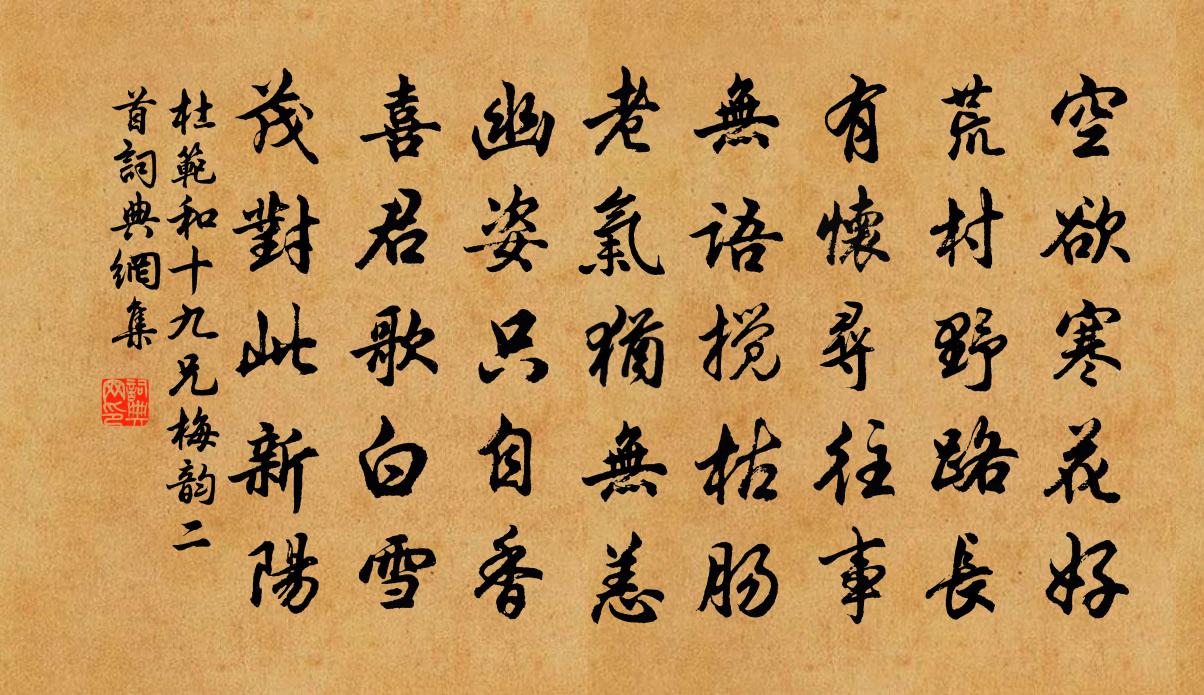 空欲寒花好
荒村野路長
有懷尋往事
無語攪枯肠
老氣猶無恙
幽姿只自香
喜君歌白雪
茂對此新陽
杜範和十九兄梅韵二
首詞典網集
詞典網印